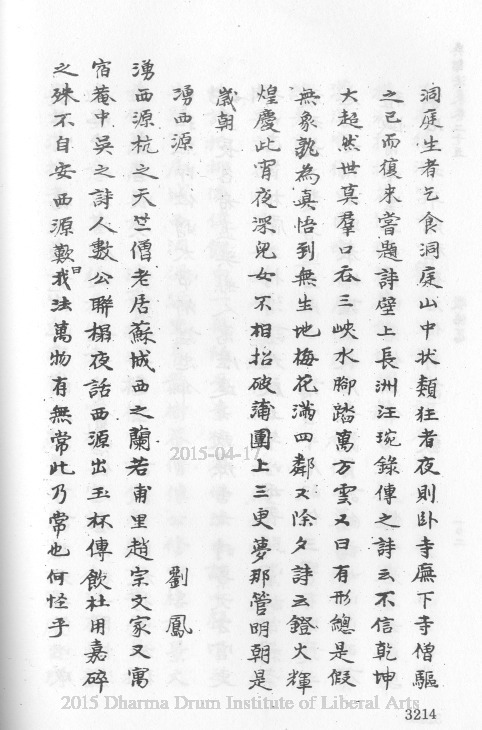 洞庭生者乞食洞庭山中狀類狂者夜則卧寺廡下寺僧驅
之已而復来嘗題詩壁上長洲汪琬錄傳之詩云不信乾坤
大超然世莫羣口吞三峽水腳踏萬方雲又曰有形總是假
無象孰為真悟到無生地梅花滿四鄰又除夕詩云鐙火輝
煌慶此宵夜深兒女不相招破蒲團上三更夢那管明朝是
歲朝
湧西源　劉鳳
湧西源杭之天竺僧老居蘇城西之蘭若甫里趙宗文家又寓
宿菴中吳之詩人數公聯榻夜話西源出玉杯傳飲杜用嘉碎
之殊不自安西源歎曰我法萬物有無常此乃常也何怪乎
2015-04-17
2015 Dharma Drum Institute of Liberal Arts
3214